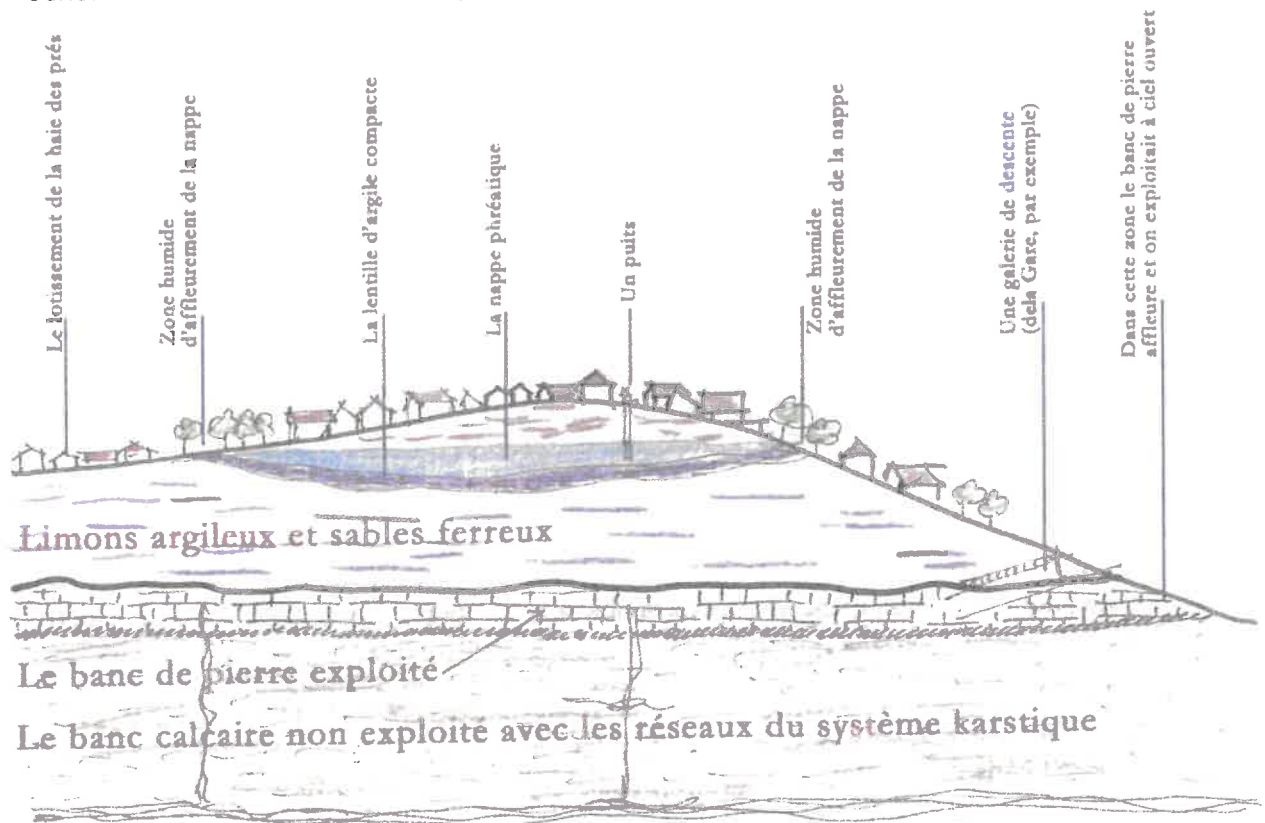 Le lotissement de la haie des prés
Zone humide
d'affleurement de la nappe
La lentille d'argile compacte
La nappe phréatique
Un puits
Zone humide
d'affleurement de la nappe
Une galerie de descente
(dela Gare, par exemple)
Dans cette zone le banc de pierre
affleure et on exploitait à ciel ouvert
Limons argileux et sables ferreux
Le banc de pierre exploité
Le banc calcaire non exploité avec les réseaux du système karstique